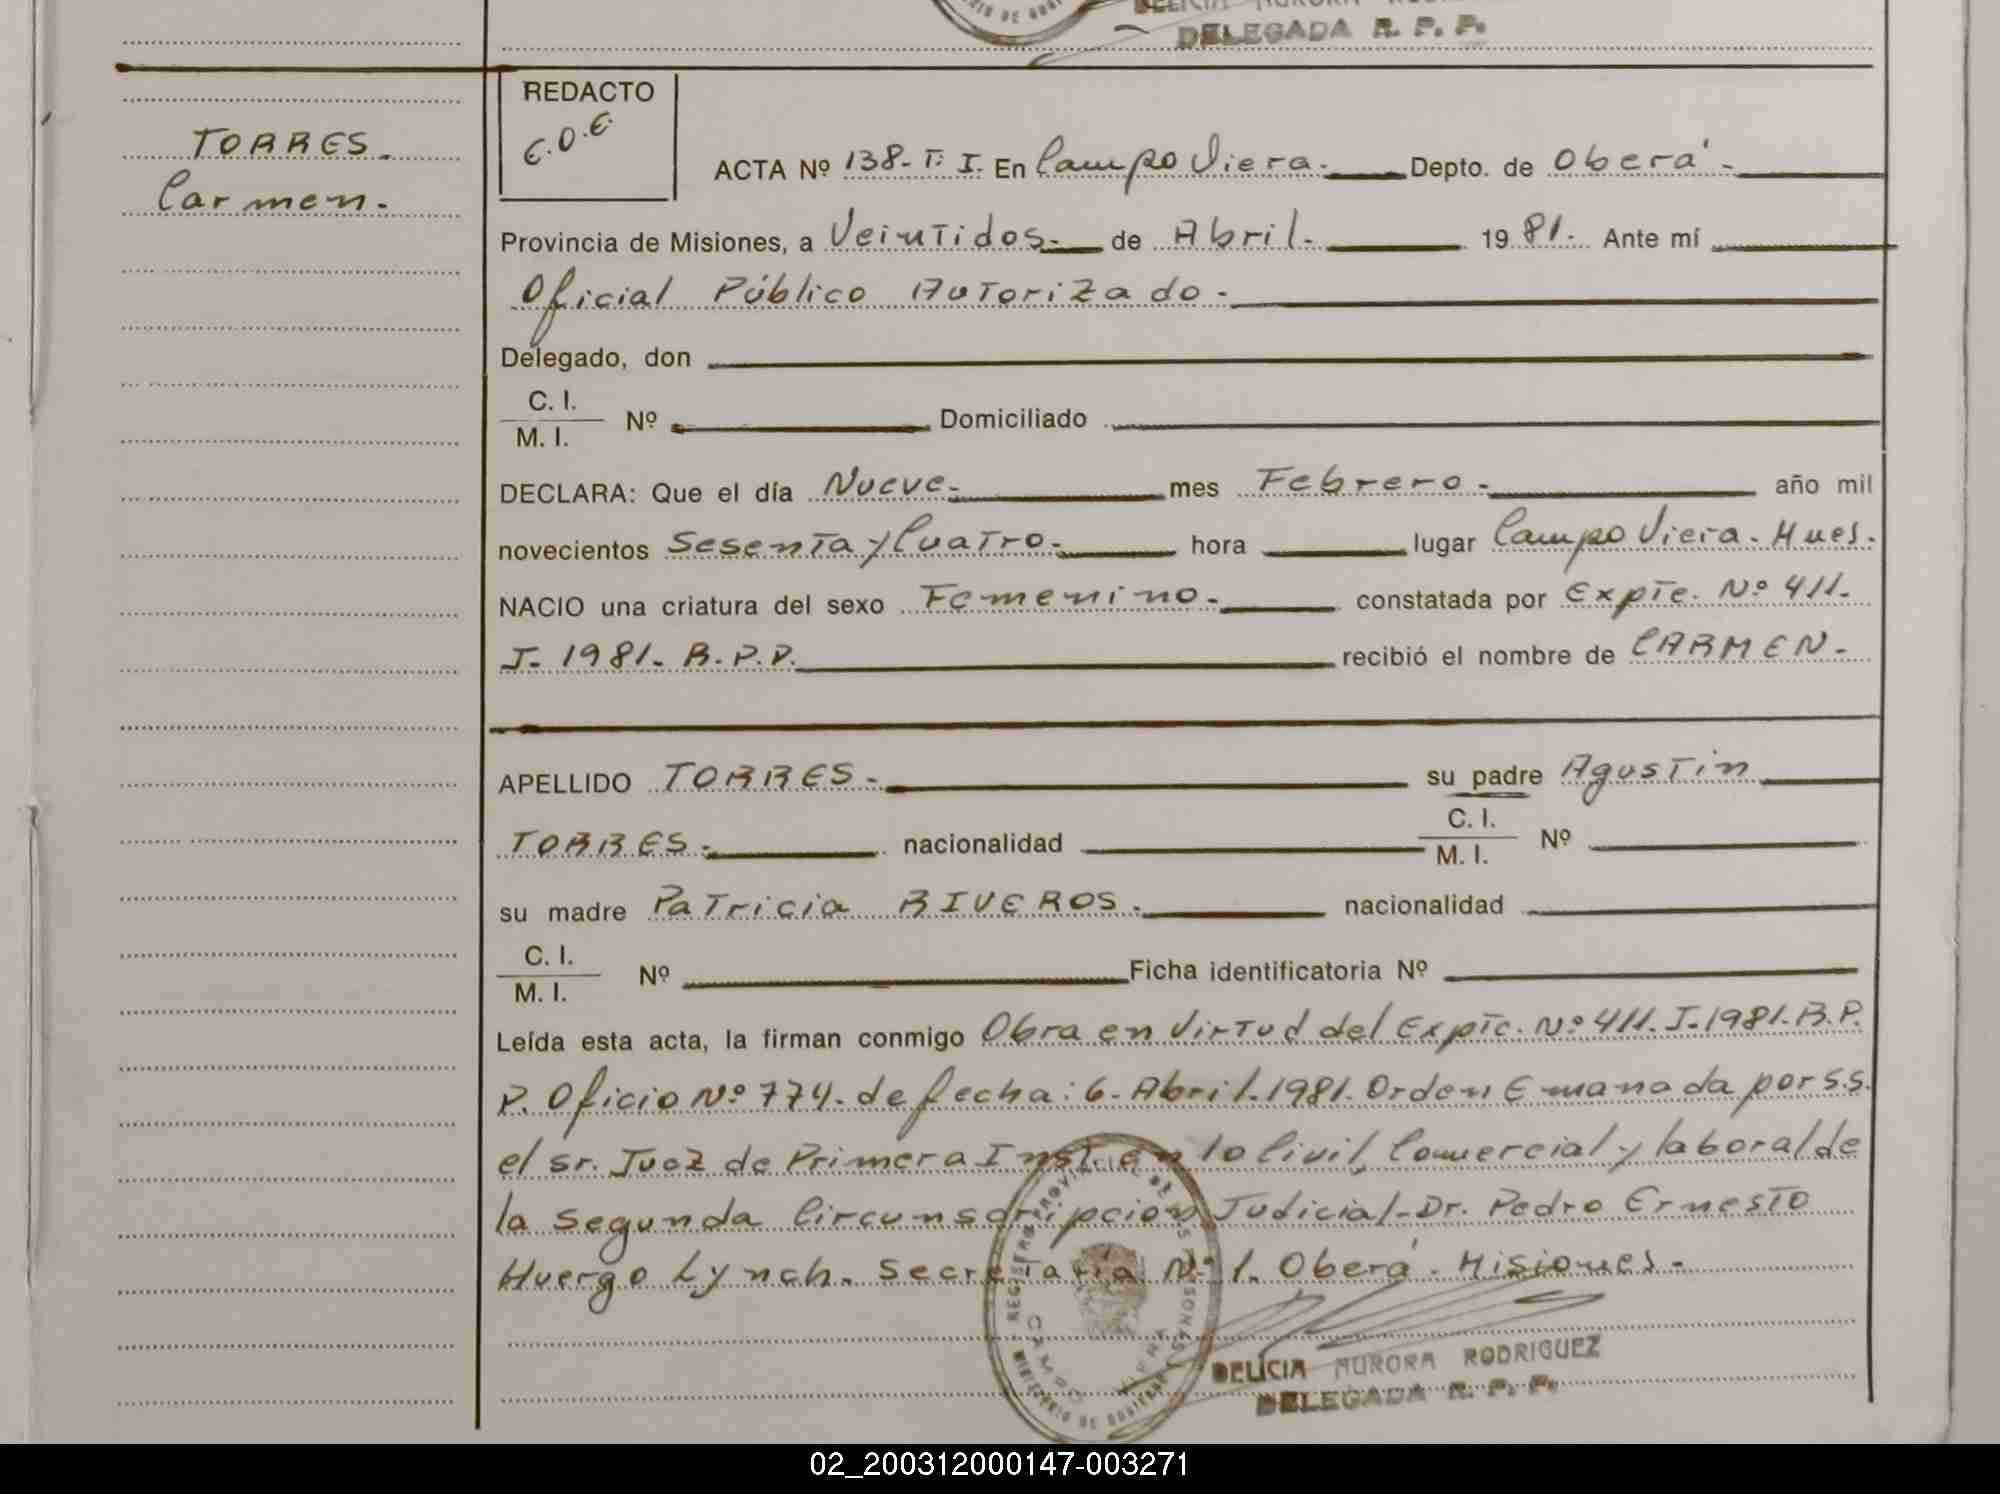 DELICIA AURORA
DELEGADA R. P. P.
REDACTO
E.O.E.
TORRES.
Carmen.
ACTA Nº 138-T. I. En Campo Viera. Depto. de Oberá.
Provincia de Misiones, a Veintidos. de Abril. 19 81. Ante mí
Oficial Público Autorizado.
Delegado, don
C. I.
M. I. Nº Domiciliado
DECLARA: Que el día Nueve. mes Febrero. año mil
novecientos Sesenta y Cuatro. hora lugar Campo Viera. Mnes.
NACIO una criatura del sexo Femenino. constatada por Expte. Nº 411.
J. 1981. R.P.P. recibió el nombre de CARMEN.
APELLIDO TORRES. su padre Agustin
TORRES. nacionalidad C. I. M. I. Nº
su madre Patricia RIVEROS. nacionalidad
C. I.
M. I. Nº Ficha identificatoria Nº
Leída esta acta, la firman conmigo Obra en Virtud del Expte. Nº 411. J. 1981. R.P.
P. Oficio Nº 774. de fecha: 6. Abril. 1981. Orden Emanada por S.S.
el Sr. Juez de Primera Inst. en lo Civil, Comercial y laboral de
la Segunda Circunscripcion Judicial-Dr. Pedro Ernesto
Huergo Lynch. Secretaria Nº 1. Oberá. Misiones.
REGISTRO PROVINCIAL DE LAS PERSONAS
CAMPO VIERA
MINISTERIO DE GOBIERNO
DELICIA AURORA RODRIGUEZ
DELEGADA R. P. P.
02_200312000147-003271